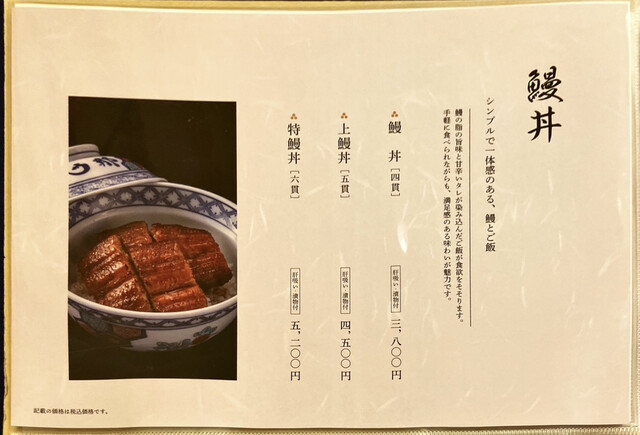 鰻丼
シンプルで一体感のある、鰻とご飯
鰻の脂の旨味と甘辛いタレが染み込んだご飯が食欲をそそります。
手軽に食べられながらも、満足感のある味わいが魅力です。
鰻丼［四貫］ 肝吸い・漬物付 三、八〇〇円
上鰻丼［五貫］ 肝吸い・漬物付 四、五〇〇円
特鰻丼［六貫］ 肝吸い・漬物付 五、二〇〇円
記載の価格は税込価格です。